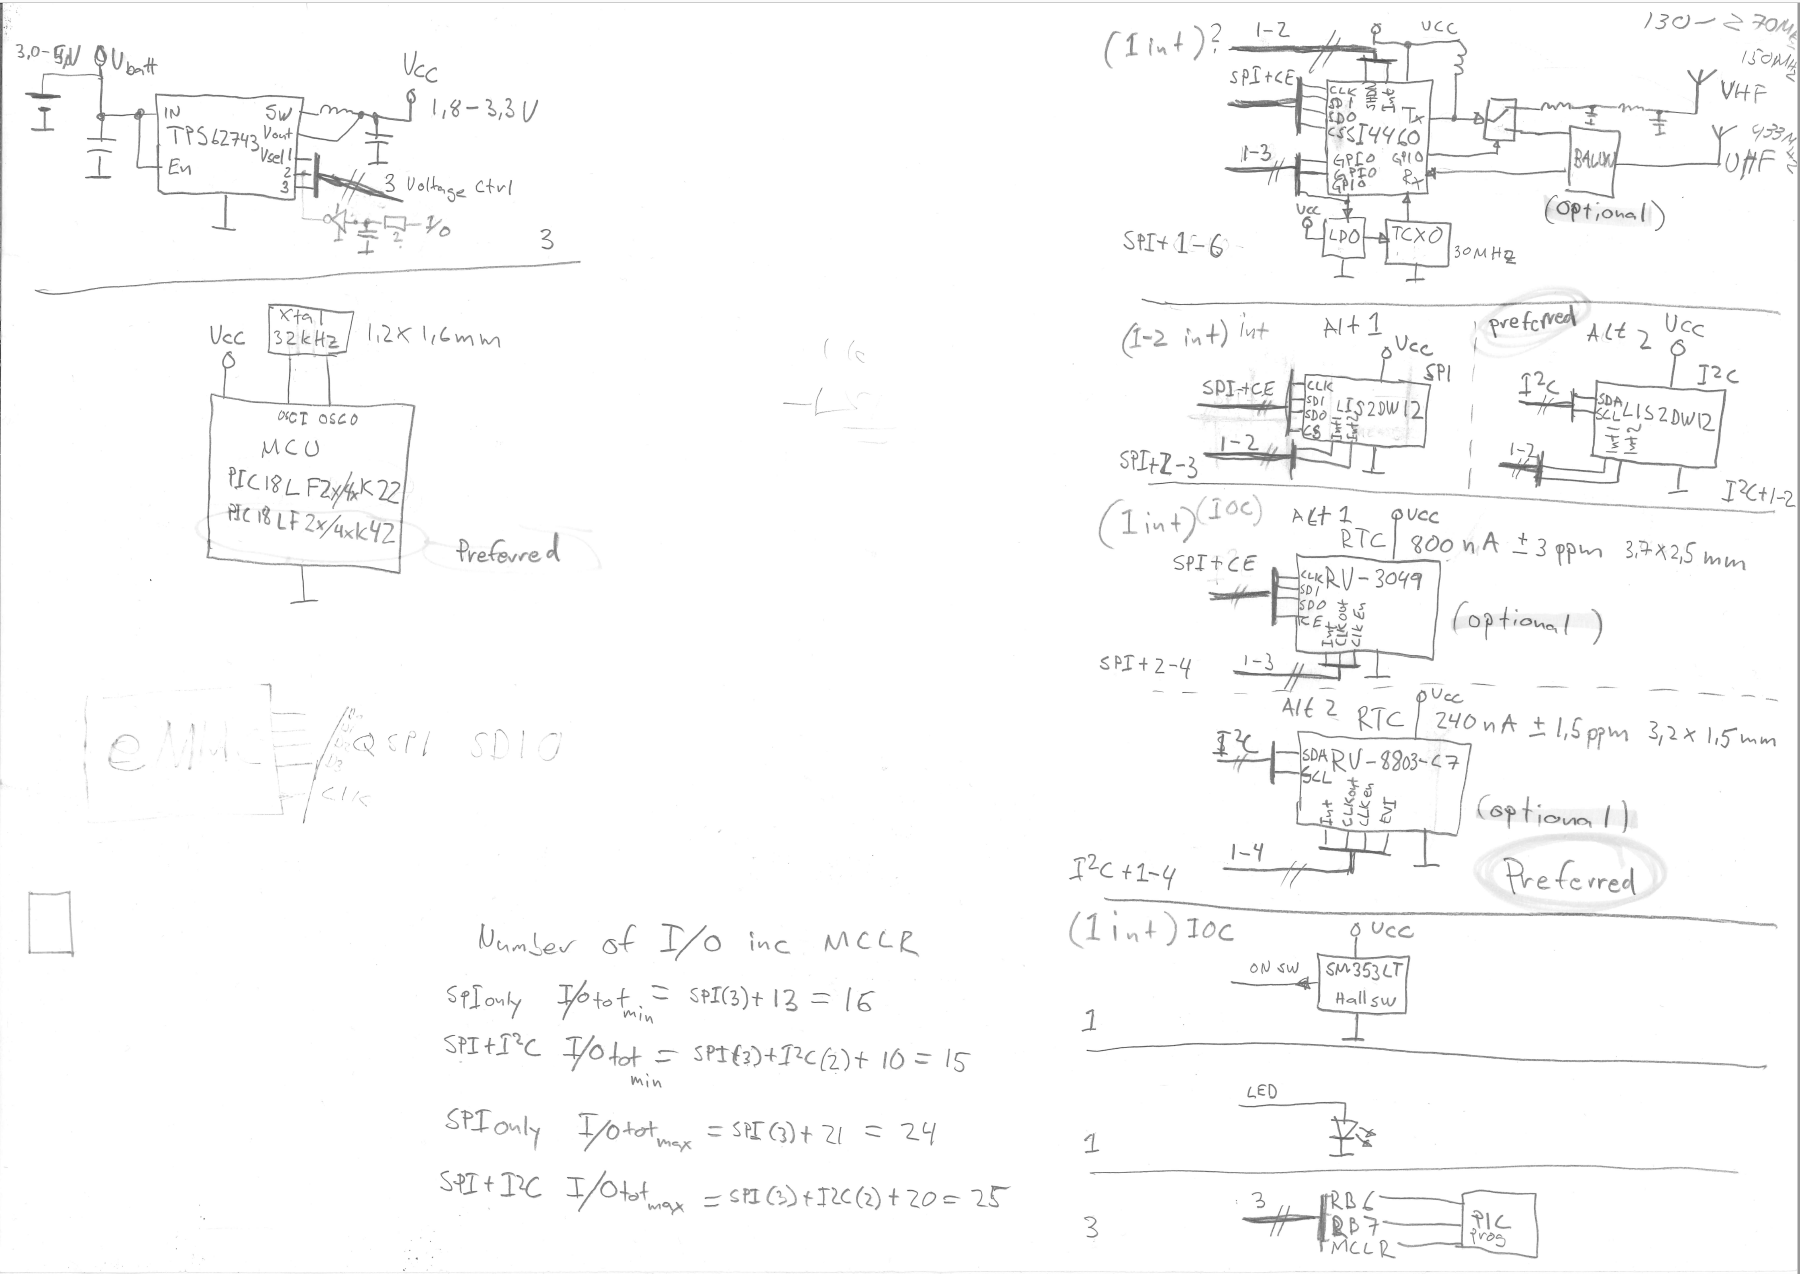 3,0-5V
Ubatt
VCC
1,8-3,3V
IN
SW
TPS62743
Vout
Vsel 1
2
3
En
3 Voltage Ctrl
I/O
3
Xtal
32kHz
1,2x1,6mm
VCC
OSCI OSCO
MCU
PIC18LF2x/4xK22
PIC18LF2x/4xK42
Preferred
eMMC
QSPI SDIO
CLK
Number of I/O inc MCLR
SPI only I/O tot min = SPI(3)+13 = 16
SPI+I²C I/O tot min = SPI(3)+I²C(2)+10=15
SPI only I/O tot max = SPI(3)+21 = 24
SPI+I²C I/O tot max = SPI(3)+I2C(2)+20=25
(1 int)?
1-2
VCC
130-270MHz
150MHz
SPI+CE
CLK
SDI
SDO
CS
SHDN
Int
Tx
SI4460
VHF
433MHz
UHF
1-3
GPIO
GPIO
GPIO
GPIO
Rx
BALUN
(optional)
VCC
LDO
TCXO
30MHz
SPI+1-6
(1-2 int) int
Alt 1
VCC
SPI
SPI+CE
CLK
SDI
SDO
CS
LIS2DW12
Int1
Int2
1-2
SPI+2-3
preferred
Alt 2
VCC
I²C
I²C
SDA
SCL
LIS2DW12
Int1
Int2
1-2
I²C+1-2
(1 int) (IOC)
Alt 1
VCC
RTC 800nA ±3ppm 3,7x2,5mm
SPI+CE
CLK
SDI
SDO
CE
RV-3049
Int
CLKout
Clk En
(optional)
SPI+2-4
1-3
Alt 2
VCC
RTC 240nA ±1,5ppm 3,2x1,5mm
I²C
SDA
SCL
RV-8803-C7
Int
CLKout
CLKen
EVI
(optional)
1-4
I²C+1-4
Preferred
(1 int) IOC
VCC
ON SW
SM353LT
Hall SW
1
LED
1
3
3
RB6
RB7
MCLR
PIC
Prog